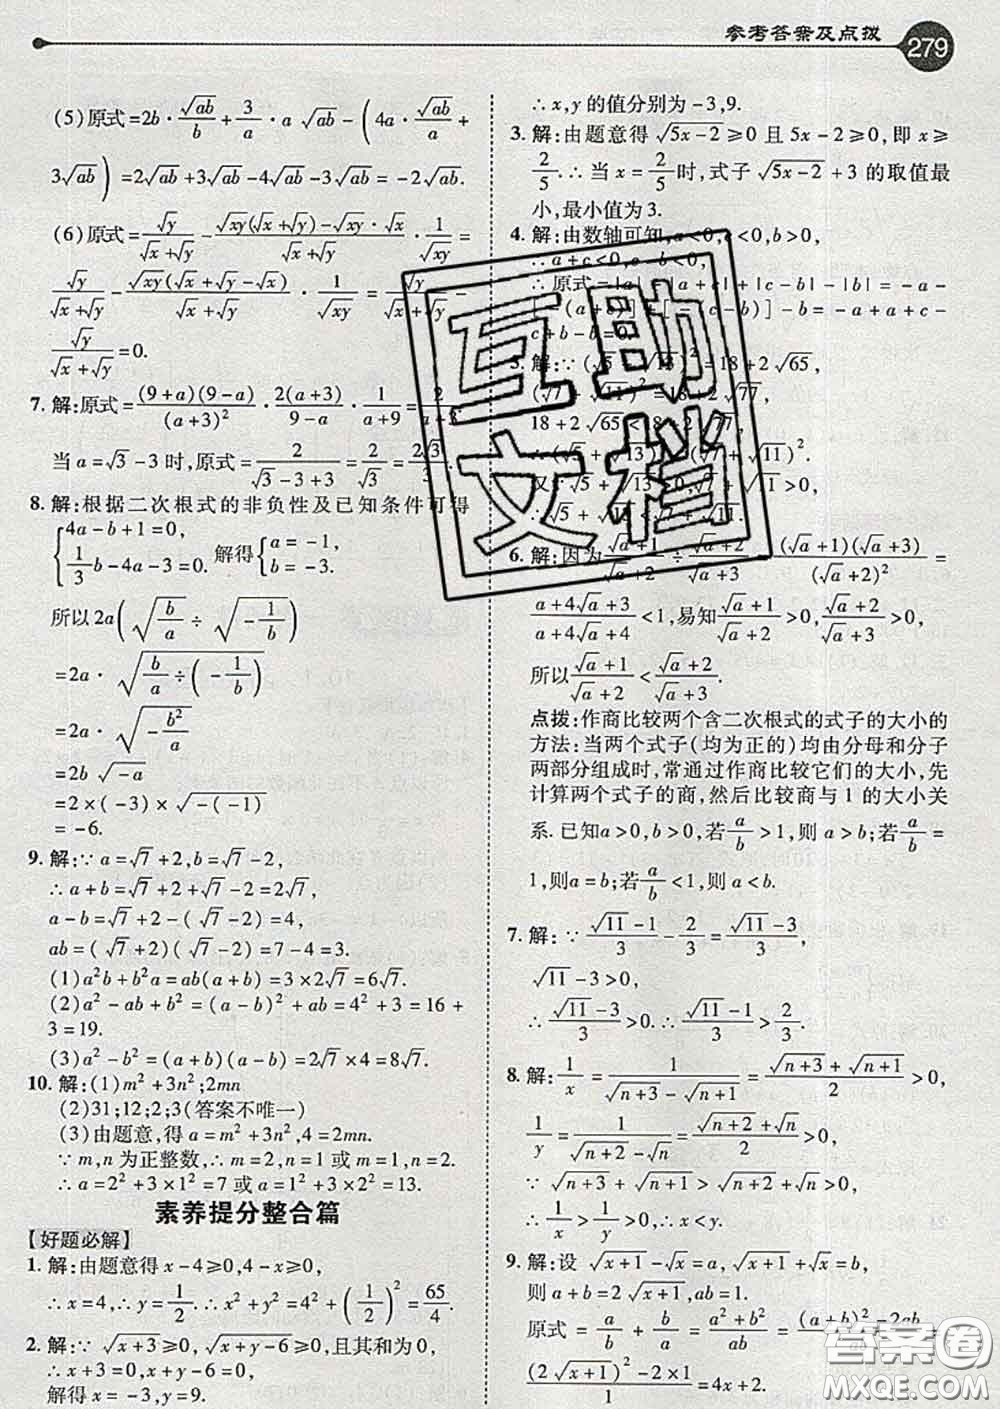 参考答案及点拨 279
(5)原式=2b·√ab/b+3/a·a√ab-(4a·√ab/a+
3√ab)=2√ab+3√ab-4√ab-3√ab=-2√ab.
(6)原式=√y/(√x+√y)-(√xy(√x+√y)-√xy·√x)/(√x+√y)·1/√y=
√y/(√x+√y)-√xy(√x+√y-√x)/(√x+√y)·1/√y=√y/(√x+√y)-
√y/(√x+√y)=0.
7. 解:原式=(9+a)(9-a)/(a+3)²·2(a+3)/(9-a)·1/(a+9)=2/(a+3).
当a=√3-3时,原式=2/(√3-3+3)=2/√3=2√3/3.
8. 解:根据二次根式的非负性及已知条件可得
{4a-b+1=0, 1/3b-4a-3=0. 解得{a=-1, b=-3.
所以2a(√(b/a)÷√(-1/b))
=2a·√(b/a÷(-1/b))
=2a·√(-b²/a)
=2b√-a
=2×(-3)×√-(-1)
=-6.
9. 解:∵a=√7+2,b=√7-2,
∴a+b=√7+2+√7-2=2√7,
a-b=√7+2-(√7-2)=4,
ab=(√7+2)(√7-2)=7-4=3.
(1)a²b+ab²=ab(a+b)=3×2√7=6√7.
(2)a²-ab+b²=(a-b)²+ab=4²+3=16+
3=19.
(3)a²-b²=(a+b)(a-b)=2√7×4=8√7.
10. 解:(1)m²+3n²;2mn
(2)31;12;2;3(答案不唯一)
(3)由题意,得a=m²+3n²,4=2mn.
∵m,n为正整数,∴m=2,n=1或m=1,n=2.
∴a=2²+3×1²=7或a=1²+3×2²=13.
素养提分整合篇
【好题必解】
1. 解:由题意得x-4≥0,4-x≥0,
∴x=4,∴y=1/2.∴x²+y²=4²+(1/2)²=65/4.
2. 解:∵√x+3≥0,√x+y-6≥0,且其和为0,
∴x+3=0,x+y-6=0,
解得x=-3,y=9.
∴x,y的值分别为-3,9.
3. 解:由题意得√5x-2≥0且5x-2≥0,即x≥
2/5.∴当x=2/5时,式子√5x-2+3的取值最
小,最小值为3.
4. 解:由数轴可知,a<0,c<0,b>0,
∴a+c<0,c-b<0.
∴原式=|a|-|a+c|+|c-b|-|b|=-a-
[-(a+c)]+[-(c-b)]-b=-a+a+c-
c+b-b=0.
5. 解:∵(√5+√13)²=18+2√65,
(√7+√11)²=18+2√77,
18+2√65<18+2√77,
∴(√5+√13)²<(√7+√11)².
又∵√5+√13>0,√7+√11>0,
∴√5+√13<√7+√11.
6. 解:因为(√a+1)/(√a+2)÷(√a+2)/(√a+3)=(√a+1)(√a+3)/(√a+2)²=
(a+4√a+3)/(a+4√a+4)<1,易知(√a+1)/(√a+2)>0,(√a+2)/(√a+3)>0,
所以(√a+1)/(√a+2)<(√a+2)/(√a+3).
点拨:作商比较两个含二次根式的式子的大小的
方法:当两个式子(均为正的)均由分母和分子
两部分组成时,常通过作商比较它们的大小,先
计算两个式子的商,然后比较商与1的大小关
系.已知a>0,b>0,若a/b>1,则a>b;若a/b=
1,则a=b;若a/b<1,则a<b.
7. 解:∵(√11-1)/3-2/3=(√11-3)/3,
√11-3>0,
∴(√11-3)/3>0.∴(√11-1)/3>2/3.
8. 解:1/x=1/(√n+3-√n+1)=(√n+3+√n+1)/2>0,
1/y=1/(√n+2-√n)=(√n+2+√n)/2>0,
∵√n+3+√n+1>√n+2+√n>0,
∴1/x>1/y>0,∴x<y.
9. 解:设√x+1-√x=a,√x+1+√x=b,
则a+b=2√x+1,ab=1.
原式=a/b+b/a=(a²+b²)/ab=((a+b)²-2ab)/ab=
((2√x+1)²-2×1)/1=4x+2.
互助
文档
答案圈
MXQE.COM